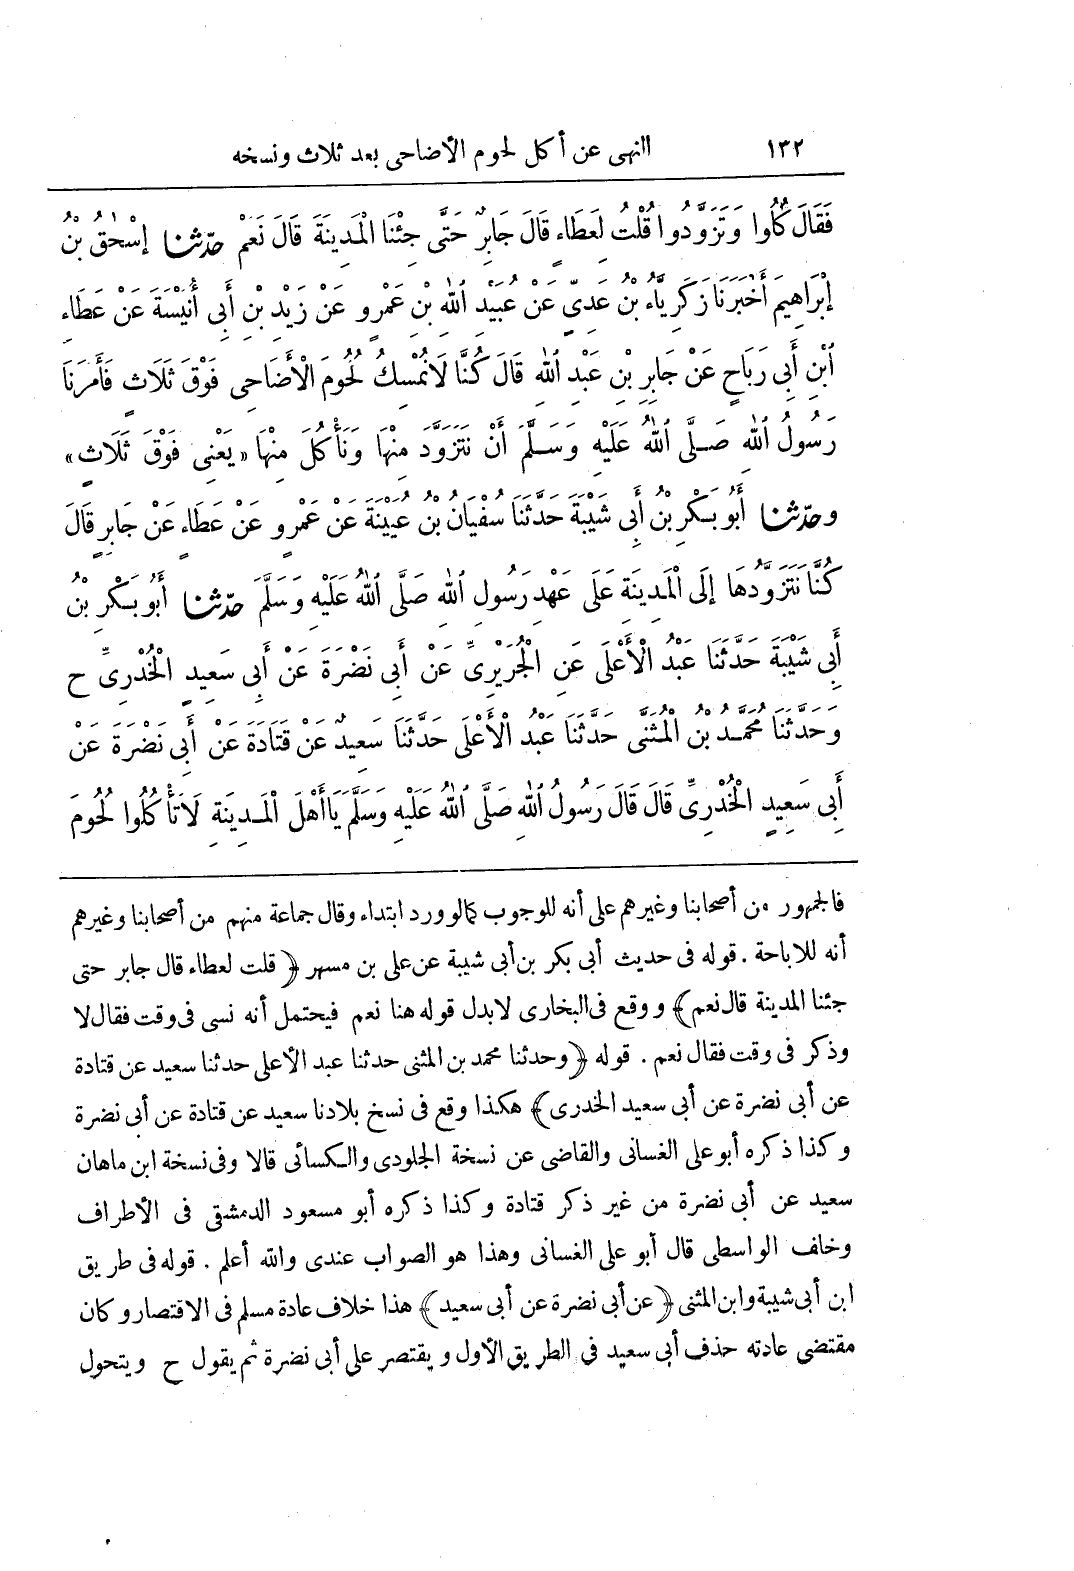 ١٣٢ النهى عن أكل لحوم الأضاحى بعد ثلاث ونسخه
فَقَالَ كُلُوا وَتَزَوَّدُوا قُلْتُ لِعَطَاءٍ قَالَ جَابِرٌ حَتَّى جِئْنَا الْمَدِينَةَ قَالَ نَعَمْ حدّثنا إِسْحٰقُ بْنُ
إِبْرَاهِيمَ أَخْبَرَنَا زَكَرِيَّاءُ بْنُ عَدِىٍّ عَنْ عُبَيْدِ اللهِ بْنِ عَمْرٍو عَنْ زَيْدِ بْنِ أَبِى أُنَيْسَةَ عَنْ عَطَاءِ
ابْنِ أَبِى رَبَاحٍ عَنْ جَابِرِ بْنِ عَبْدِ اللهِ قَالَ كُنَّا لَا نُمْسِكُ لُحُومَ الْأَضَاحِى فَوْقَ ثَلَاثٍ فَأَمَرَنَا
رَسُولُ اللهِ صَلَّى اللهُ عَلَيْهِ وَسَلَّمَ أَنْ نَتَزَوَّدَ مِنْهَا وَنَأْكُلَ مِنْهَا «يَعْنِى فَوْقَ ثَلَاثٍ»
وحدّثنا أَبُو بَكْرِ بْنُ أَبِى شَيْبَةَ حَدَّثَنَا سُفْيَانُ بْنُ عُيَيْنَةَ عَنْ عَمْرٍو عَنْ عَطَاءٍ عَنْ جَابِرٍ قَالَ
كُنَّا نَتَزَوَّدُهَا إِلَى الْمَدِينَةِ عَلَى عَهْدِ رَسُولِ اللهِ صَلَّى اللهُ عَلَيْهِ وَسَلَّمَ حدّثنا أَبُو بَكْرِ بْنُ
أَبِى شَيْبَةَ حَدَّثَنَا عَبْدُ الْأَعْلَى عَنِ الْجُرَيْرِىِّ عَنْ أَبِى نَضْرَةَ عَنْ أَبِى سَعِيدٍ الْخُدْرِىِّ ح
وَحَدَّثَنَا مُحَمَّدُ بْنُ الْمُثَنَّى حَدَّثَنَا عَبْدُ الْأَعْلَى حَدَّثَنَا سَعِيدٌ عَنْ قَتَادَةَ عَنْ أَبِى نَضْرَةَ عَنْ
أَبِى سَعِيدٍ الْخُدْرِىِّ قَالَ قَالَ رَسُولُ اللهِ صَلَّى اللهُ عَلَيْهِ وَسَلَّمَ يَا أَهْلَ الْمَدِينَةِ لَا تَأْكُلُوا لُحُومَ
فالجمهور من أصحابنا وغيرهم على أنه للوجوب كما لو ورد ابتداء وقال جماعة منهم من أصحابنا وغيرهم
أنه للاباحة . قوله فى حديث أبى بكر بن أبى شيبة عن على بن مسهر ﴿ قلت لعطاء قال جابر حتى
جئنا المدينة قال نعم﴾ ووقع فى البخارى لا بدل قوله هنا نعم فيحتمل أنه نسى فى وقت فقال لا
وذكر فى وقت فقال نعم . قوله ﴿وحدثنا محمد بن المثنى حدثنا عبد الأعلى حدثنا سعيد عن قتادة
عن أبى نضرة عن أبى سعيد الخدرى﴾ هكذا وقع فى نسخ بلادنا سعيد عن قتادة عن أبى نضرة
وكذا ذكره أبو على الغسانى والقاضى عن نسخة الجلودى والكسائى قالا وفى نسخة ابن ماهان
سعيد عن أبى نضرة من غير ذكر قتادة وكذا ذكره أبو مسعود الدمشقى فى الأطراف
وخلف الواسطى قال أبو على الغسانى وهذا هو الصواب عندى والله أعلم . قوله فى طريق
ابن أبى شيبة وابن المثنى ﴿عن أبى نضرة عن أبى سعيد﴾ هذا خلاف عادة مسلم فى الاقتصار وكان
مقتضى عادته حذف أبى سعيد فى الطريق الأول ويقتصر على أبى نضرة ثم يقول ح ويتحول